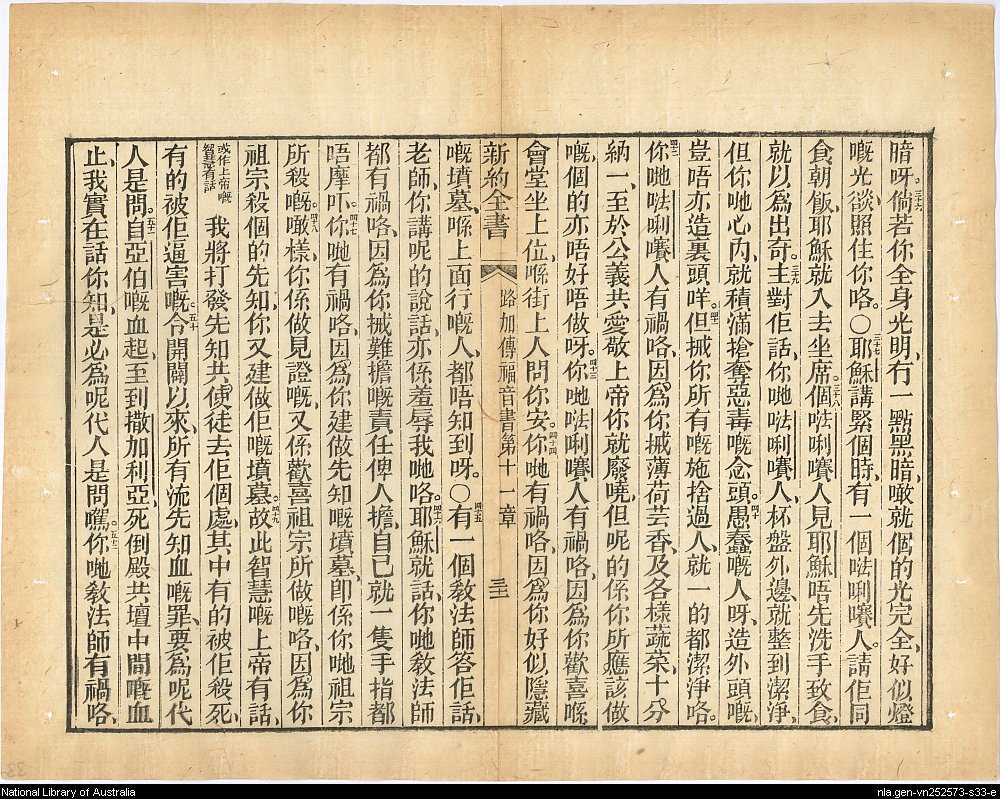 暗呀。三十六倘若你全身光明、冇一點黑暗、噉就個的光完全、好似燈
嘅光𦧲照住你咯。〇三十七耶穌講緊個時、有一個㗲唎㘔人。請佢同
食朝飯、耶穌就入去坐席。三十八個㗲唎㘔人見耶穌唔先洗手致食、
就以爲出奇。三十九主對佢話、你哋㗲唎㘔人、杯盤外邊就整到潔淨、
但你哋心內、就積滿搶奪惡毒嘅念頭。四十愚蠢嘅人呀、造外頭嘅、
豈唔亦造裏頭咩。四一但摵你所有嘅施捨過人、就一的都潔淨咯。
四二你哋㗲唎㘔人有禍咯、因爲你摵薄荷芸香、及各樣蔬菜、十分
納一、至於公義共愛敬上帝你就廢曉、但呢的係你所應該做
嘅、個的亦唔好唔做呀。四十三你哋㗲唎㘔人有禍咯、因爲你歡喜喺
會堂坐上位、喺街上人問你安。四十四你哋有禍咯、因爲你好似隱藏
嘅墳墓、喺上面行嘅人、都唔知到呀。〇四十五有一個敎法師答佢話、
老師、你講呢的說話、亦係羞辱我哋咯。四十六耶穌就話、你哋敎法師
都有禍咯、因爲你摵難擔嘅責任俾人擔、自己就一隻手指都
唔摩吓。四十七你哋有禍咯、因爲你建做先知嘅墳墓、卽係你哋祖宗
所殺嘅。四十八噉樣、你係做見證嘅、又係歡喜祖宗所做嘅咯、因爲你
祖宗殺個的先知、你又建做佢嘅墳墓。四十九故此智慧嘅上帝有話、
或作上帝嘅智慧有話 我將打發先知共使徒去佢個處、其中有的被佢殺死、
有的被佢逼害嘅。五十令開闢以來、所有流先知血嘅罪、要爲呢代
人是問。五一自亞伯嘅血起、至到撒加利亞、死倒殿共壇中間嘅血
止、我實在話你知、是必爲呢代人是問嚄。五十二你哋敎法師有禍咯、
新約全書 路加傳福音書第十一章 三十三
National Library of Australia
nla.gen-vn252573-s33-e